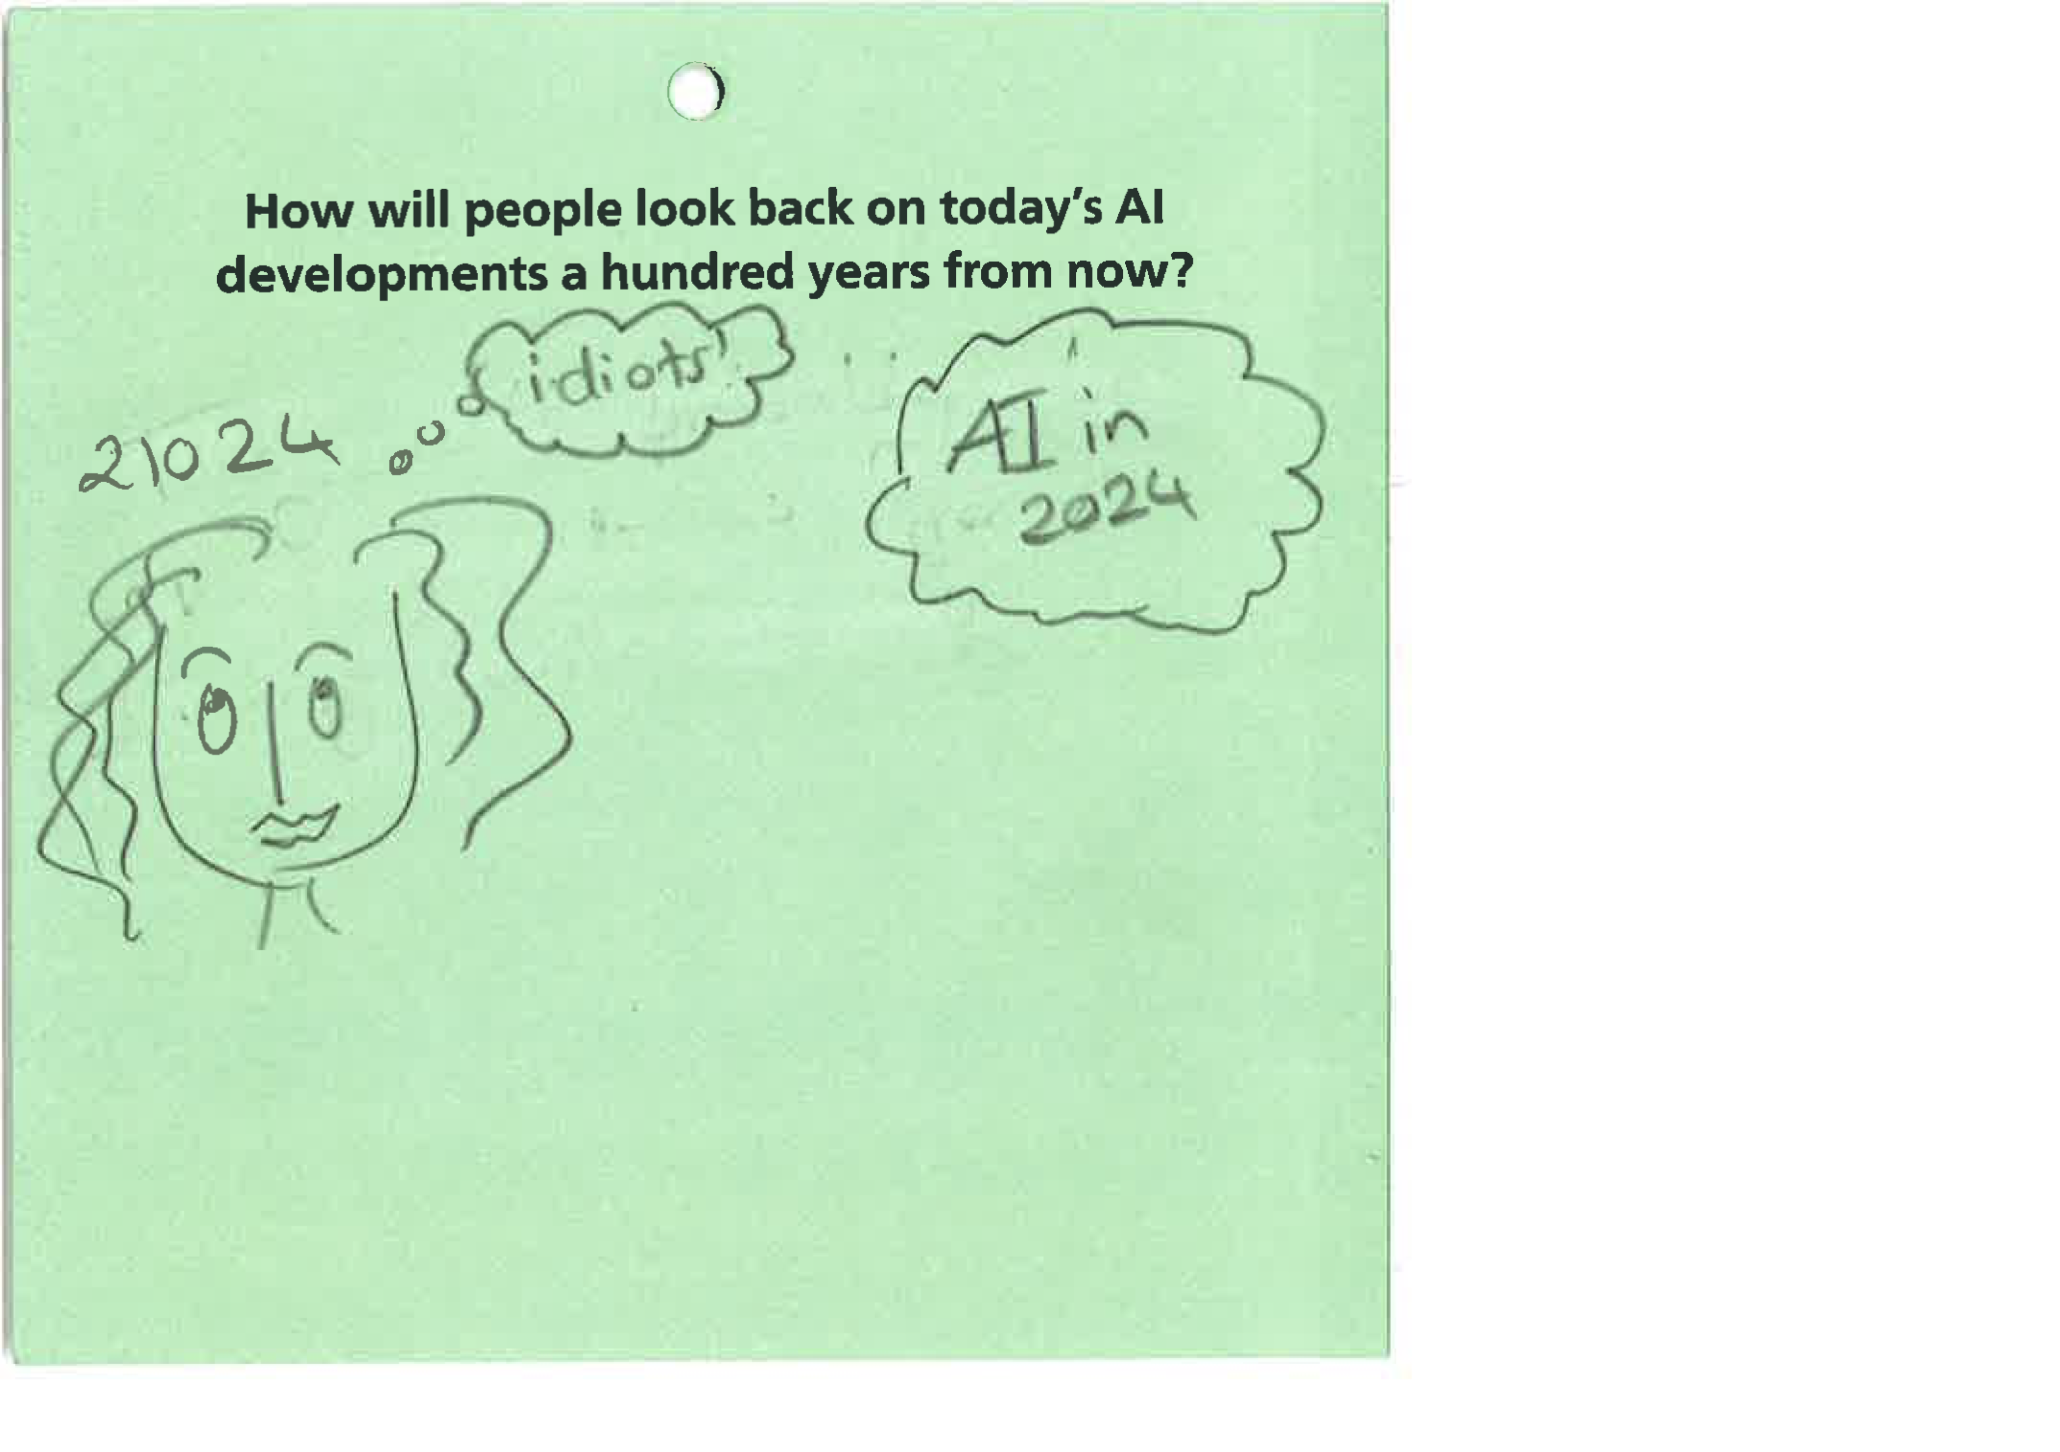 How will people look back on today's AI
developments a hundred years from now?
idiots!
21024
AI in
2024